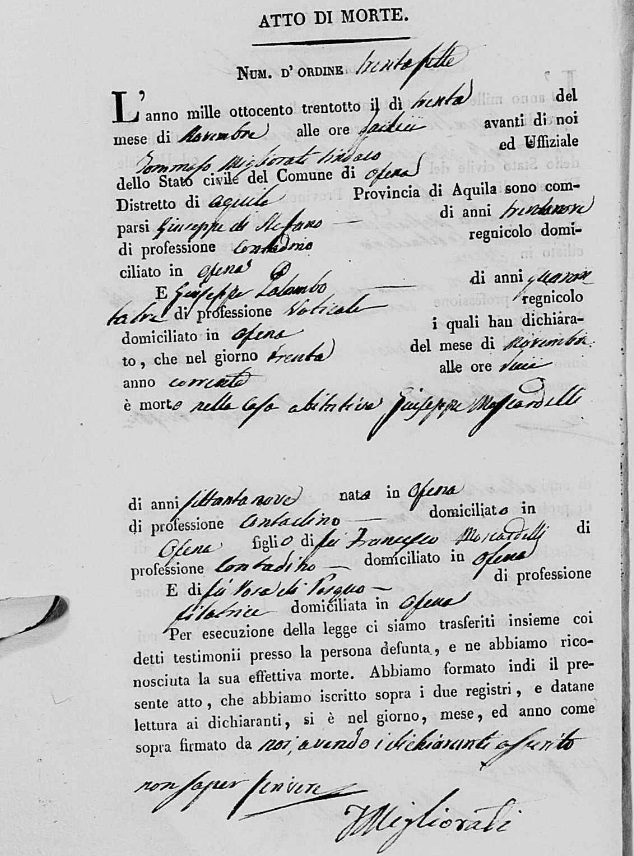 ATTO DI MORTE.
NUM. D' ORDINE trentasette
L'anno mille ottocento trentotto il dì trenta del
mese di Novembre alle ore sedici avanti di noi
Tommaso Migliorati Sindaco ed Uffiziale
dello Stato civile del Comune di Ofena
Distretto di Aquila Provincia di Aquila sono com-
parsi Giuseppe di Stefano di anni trentanove
di professione Contadino regnicolo domi-
ciliato in Ofena
E Giuseppe Palombo di anni quaran
tatre di professione Vaticale regnicolo
domiciliato in Ofena i quali han dichiara-
to, che nel giorno trenta del mese di Novembre
anno corrente alle ore
è morto nella Casa abitativa Giuseppe Moscardelli
di anni settantanove nato in Ofena
di professione Contadino domiciliato in
Ofena figlio di fù Francesco Moscardelli di
professione Contadino domiciliato in Ofena
E di fù di professione
filatrice domiciliata in Ofena
Per esecuzione della legge ci siamo trasferiti insieme coi
detti testimonii presso la persona defunta, e ne abbiamo rico-
nosciuta la sua effettiva morte. Abbiamo formato indi il pre-
sente atto, che abbiamo iscritto sopra i due registri, e datane
lettura ai dichiaranti, si è nel giorno, mese, ed anno come
sopra firmato da noi, avendo i dichiaranti asserito
non saper scrivere
TMigliorati